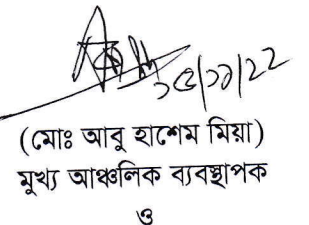 (মোঃ আবু হাশেম মিয়া)
মুখ্য আঞ্চলিক ব্যবস্থাপক
ও